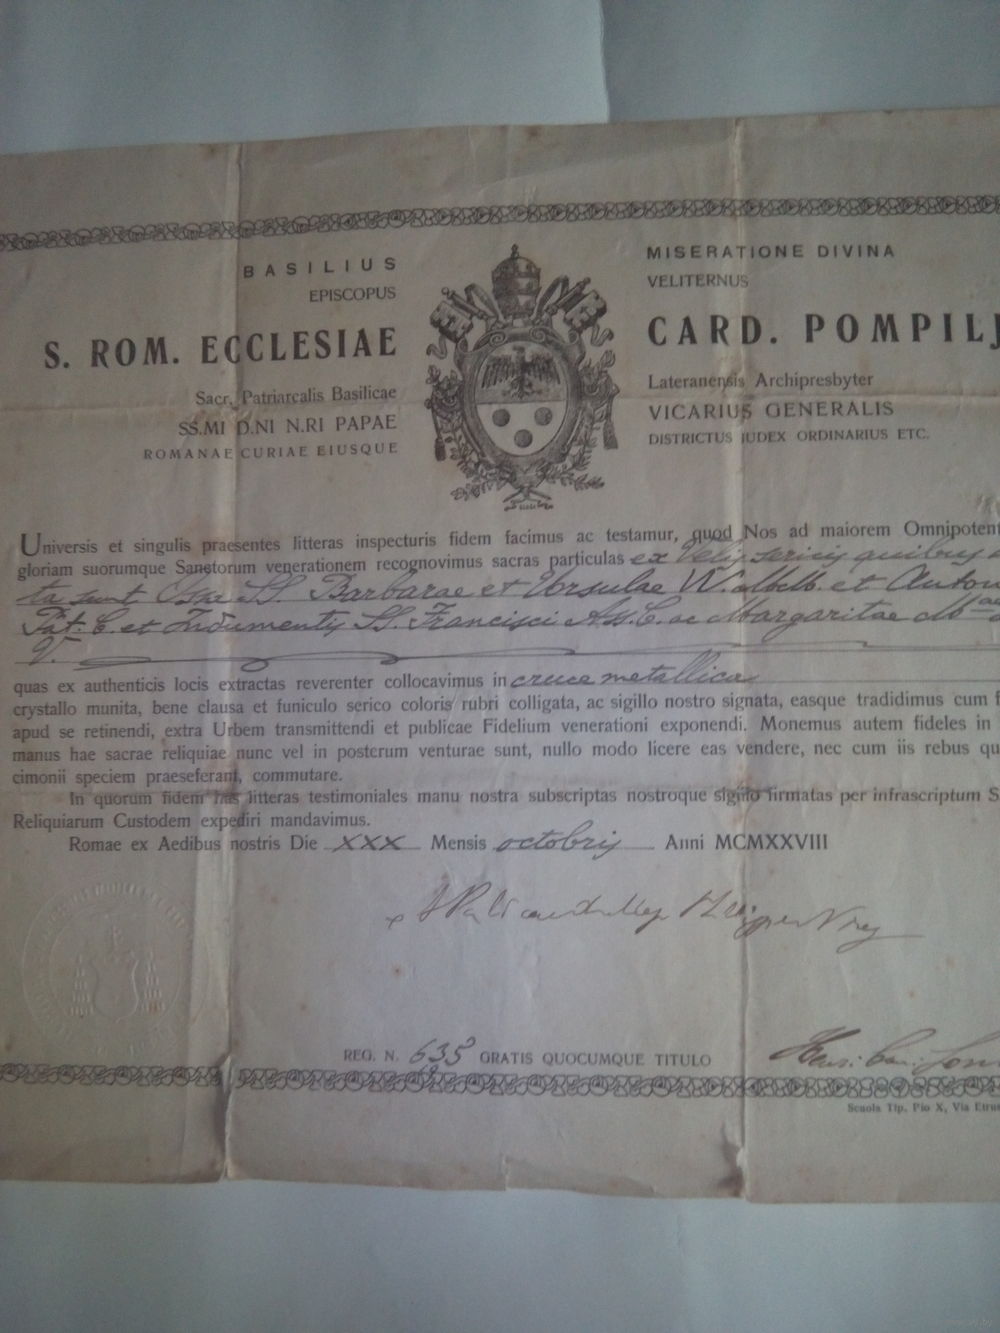 BASILIUS MISERATIONE DIVINA
EPISCOPUS VELITERNUS
S. ROM. ECCLESIAE CARD. POMPILJ
Sacr. Patriarcalis Basilicae Lateranensis Archipresbyter
SS.MI D.NI N.RI PAPAE VICARIUS GENERALIS
ROMANAE CURIAE EIUSQUE DISTRICTUS IUDEX ORDINARIUS ETC.
Universis et singulis praesentes litteras inspecturis fidem facimus ac testamur, quod Nos ad maiorem Omnipoten
gloriam suorumque Sanctorum venerationem recognovimus sacras particulas ex Velis sericis quibus
ta sunt Ossa SS. Barbarae et Ursulae et Anton
Pat. C. et Indumentis SS. Francisci As. C. ac Margaritae M
V.
quas ex authenticis locis extractas reverenter collocavimus in cruce metallica
crystallo munita, bene clausa et funiculo serico coloris rubri colligata, ac sigillo nostro signata, easque tradidimus cum f
apud se retinendi, extra Urbem transmittendi et publicae Fidelium venerationi exponendi. Monemus autem fideles in
manus hae sacrae reliquiae nunc vel in posterum venturae sunt, nullo modo licere eas vendere, nec cum iis rebus qu
cimonii speciem praeseferant, commutare.
In quorum fidem has litteras testimoniales manu nostra subscriptas nostroque sigillo firmatas per infrascriptum S.
Reliquiarum Custodem expediri mandavimus.
Romae ex Aedibus nostris Die XXX Mensis octobris Anni MCMXXVIII
REG. N. 635 GRATIS QUOCUMQUE TITULO
Scuola Tip. Pio X, Via Etrus